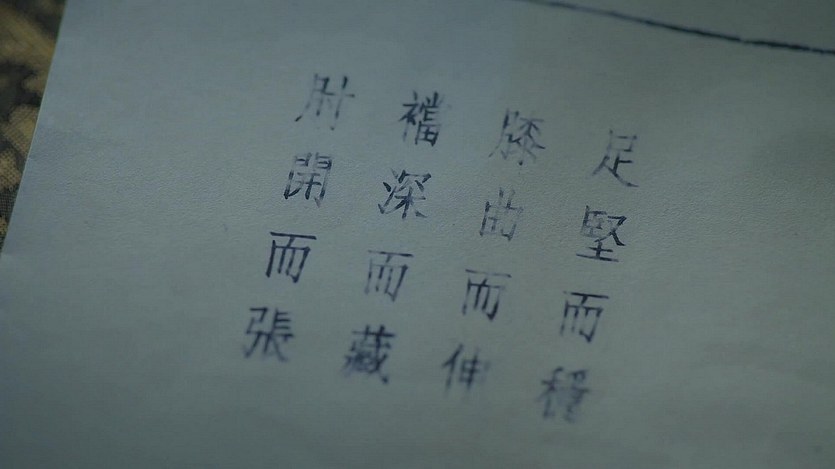 足堅而穩
膝曲而伸
襠深而藏
肘開而張